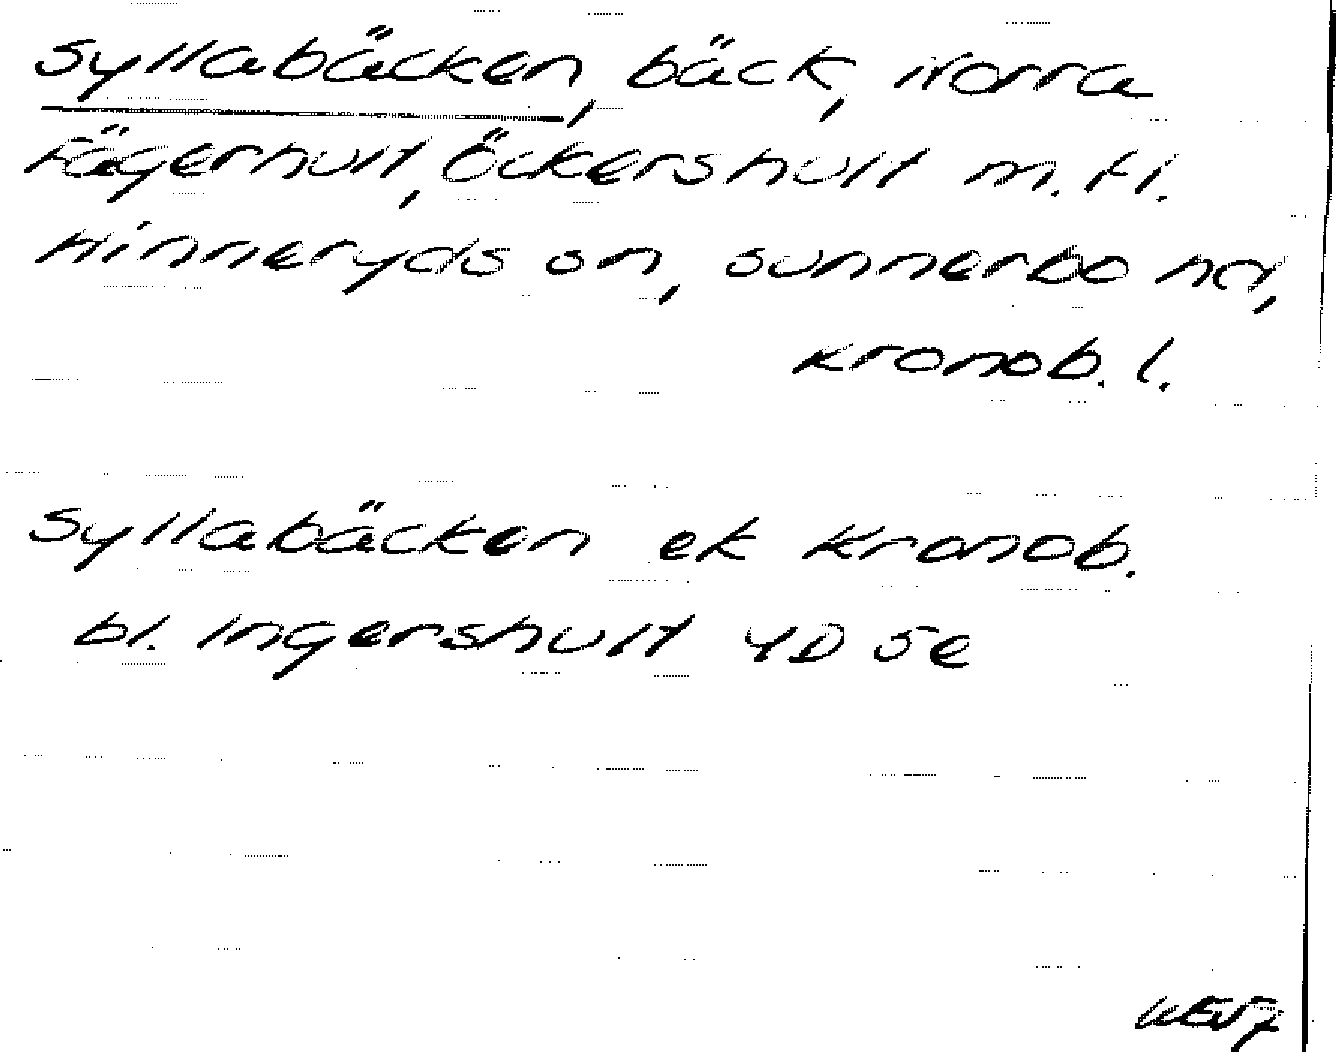 Syllabäcken, bäck, Norra
Fägerhult, Öckershult m. fl.
Hinneryds sn, Sunnerbo hd,
Kronob. l.
Syllabäcken ek Kronob.
bl. Ingershult 4D 5e